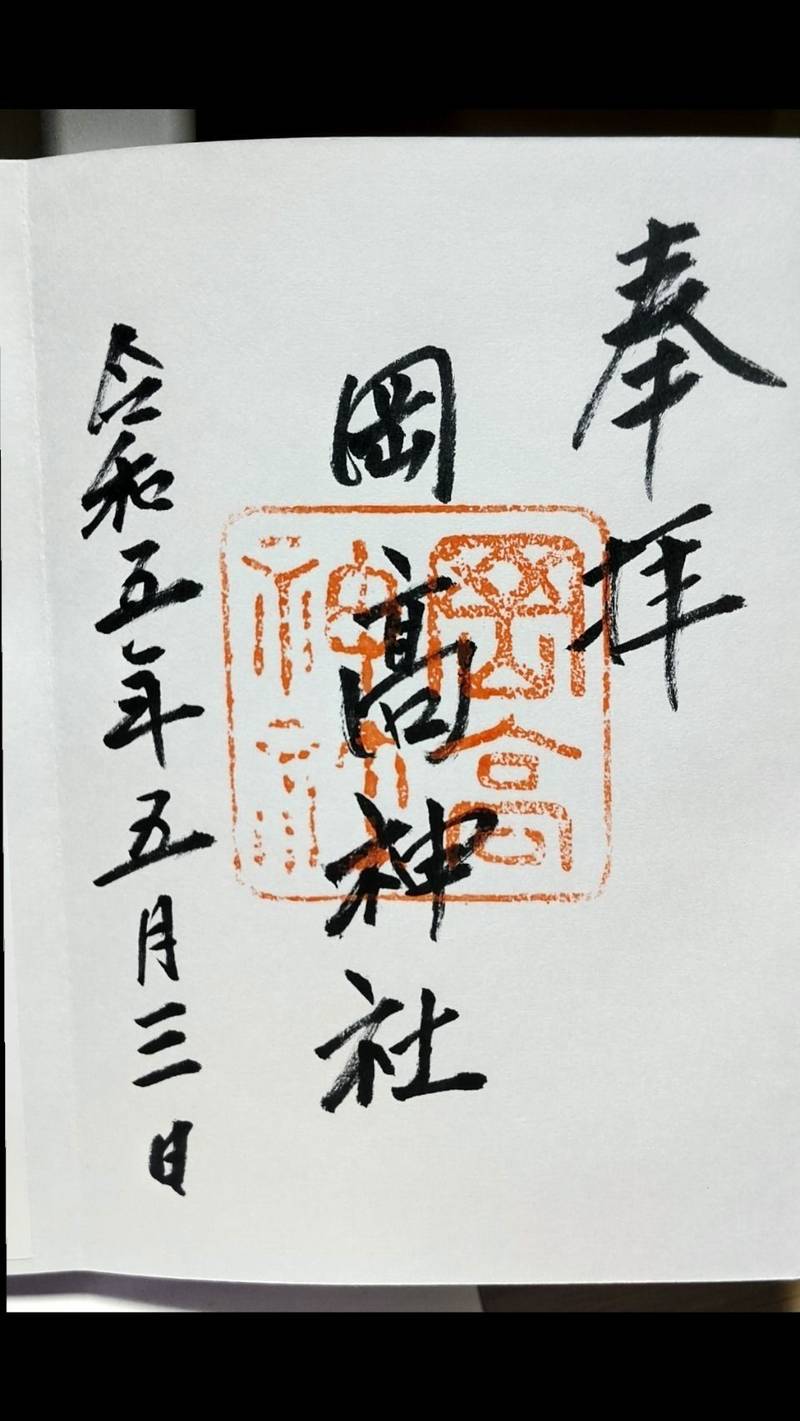 奉拝
岡高神社
令和五年五月三日
岡高
神社